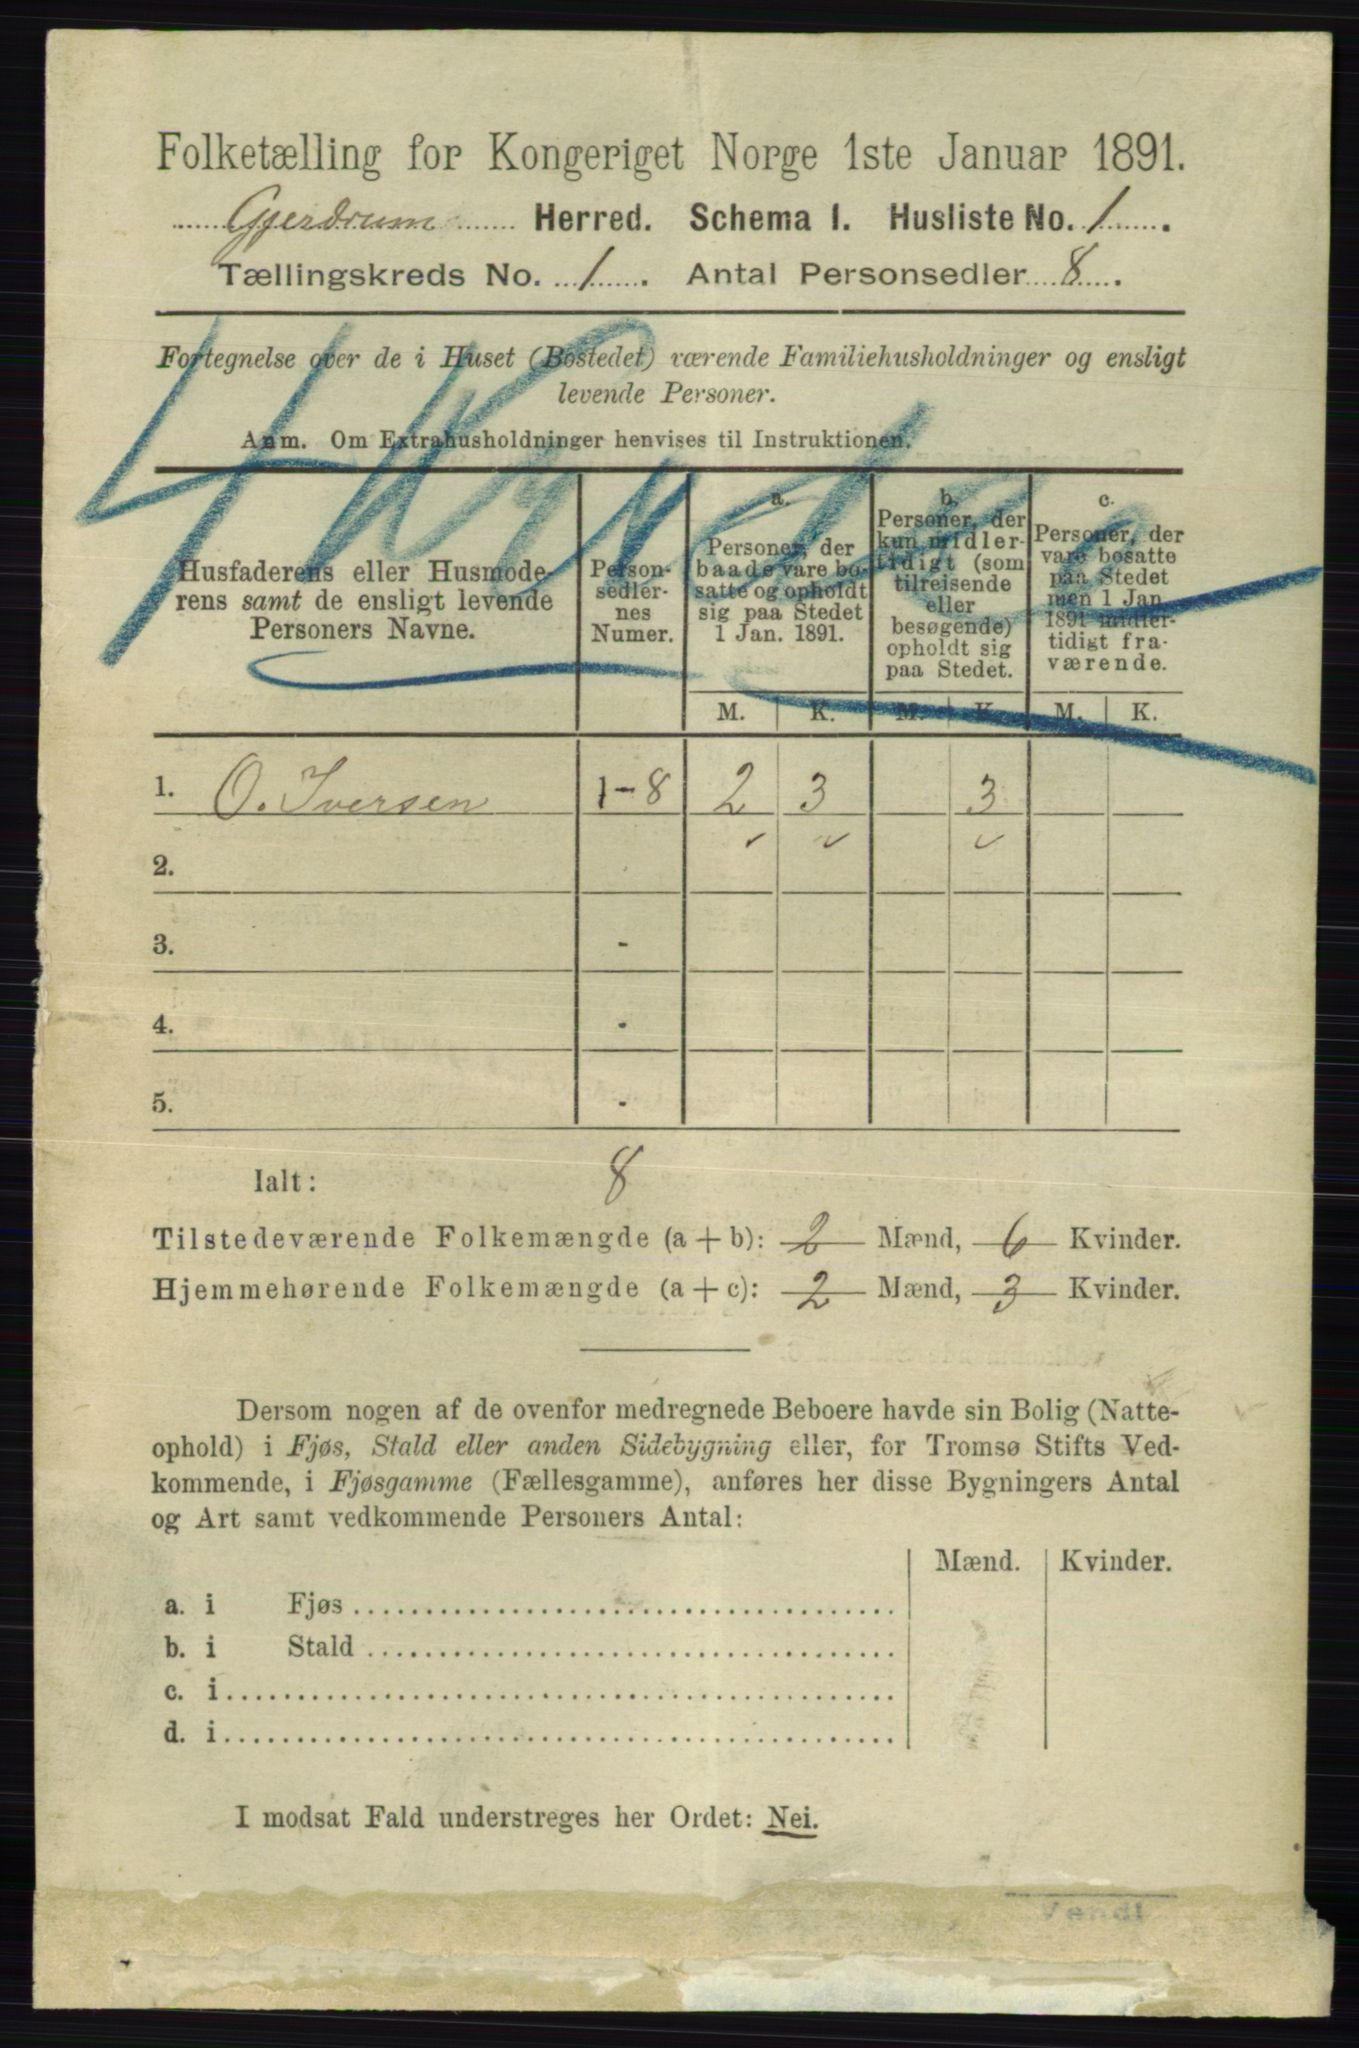 Folketælling for Kongeriget Norge 1ste Januar 1891.
Gjerdrum Herred. Schema I. Husliste No. 1.
Tællingskreds No. 1. Antal Personsedler 8.
Fortegnelse over de i Huset (Bostedet) værende Familiehusholdninger og ensligt
levende Personer.
Anm. Om Extrahusholdninger henvises til Instruktionen.
Husfaderens eller Husmode-
rens samt de ensligt levende
Personers Navne.
Person-
sedler-
nes
Numer.
a.
Personer, der
baade vare bo-
satte og opholdt
sig paa Stedet
1 Jan. 1891.
b.
Personer, der
kun midler-
tidigt (som
tilreisende
eller
besøgende)
opholdt sig
paa Stedet.
c.
Personer, der
vare bosatte
paa Stedet
men 1 Jan.
1891 midler-
tidigt fra-
værende.
M. K. M. K. M. K.
1. O. Iversen 1-8 2 3 3
2.
3. -
4. -
5. -
Ialt: 8
Tilstedeværende Folkemængde (a + b): 2 Mænd, 6 Kvinder.
Hjemmehørende Folkemængde (a + c): 2 Mænd, 3 Kvinder.
Dersom nogen af de ovenfor medregnede Beboere havde sin Bolig (Natte-
ophold) i Fjøs, Stald eller anden Sidebygning eller, for Tromsø Stifts Ved-
kommende, i Fjøsgamme (Fællesgamme), anføres her disse Bygningers Antal
og Art samt vedkommende Personers Antal:
Mænd. Kvinder.
a. i Fjøs
b. i Stald
c. i
d. i
I modsat Fald understreges her Ordet: Nei.
Vend!